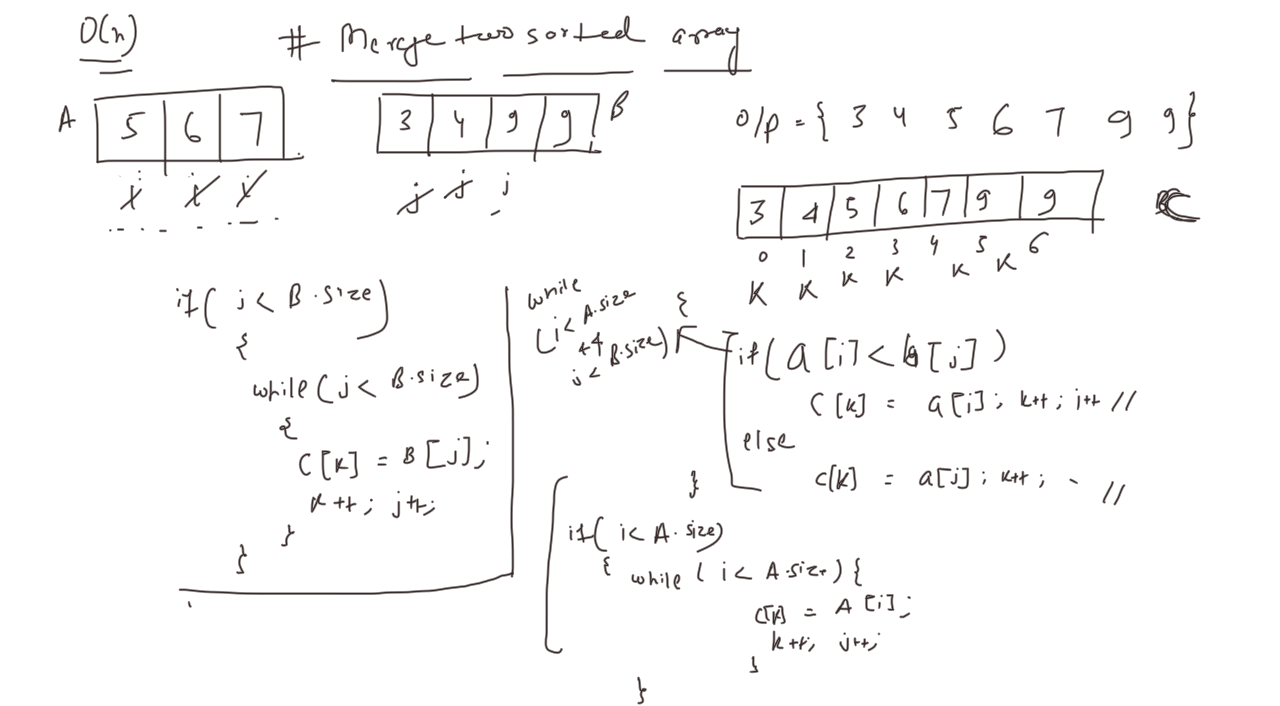 O(n)
# Merge two sorted array
A 5 6 7
3 4 9 9 B
o/p = { 3 4 5 6 7 9 9 }
i i i
j j j
3 4 5 6 7 9 9 C
0 1 2 3 4 5 6
K K K K K K
if ( j < B.size )
{
while ( j < B.size )
{
C[K] = B[j];
K++; j++;
}
}
while
( i < A.size
&& j < B.size ) {
if ( a[i] < b[j] )
C[k] = a[i]; k++; i++ //
else
c[k] = a[j]; k++; - //
}
if ( i < A.size )
{ while ( i < A.size ) {
C[K] = A[i];
k++; j++;
}
}